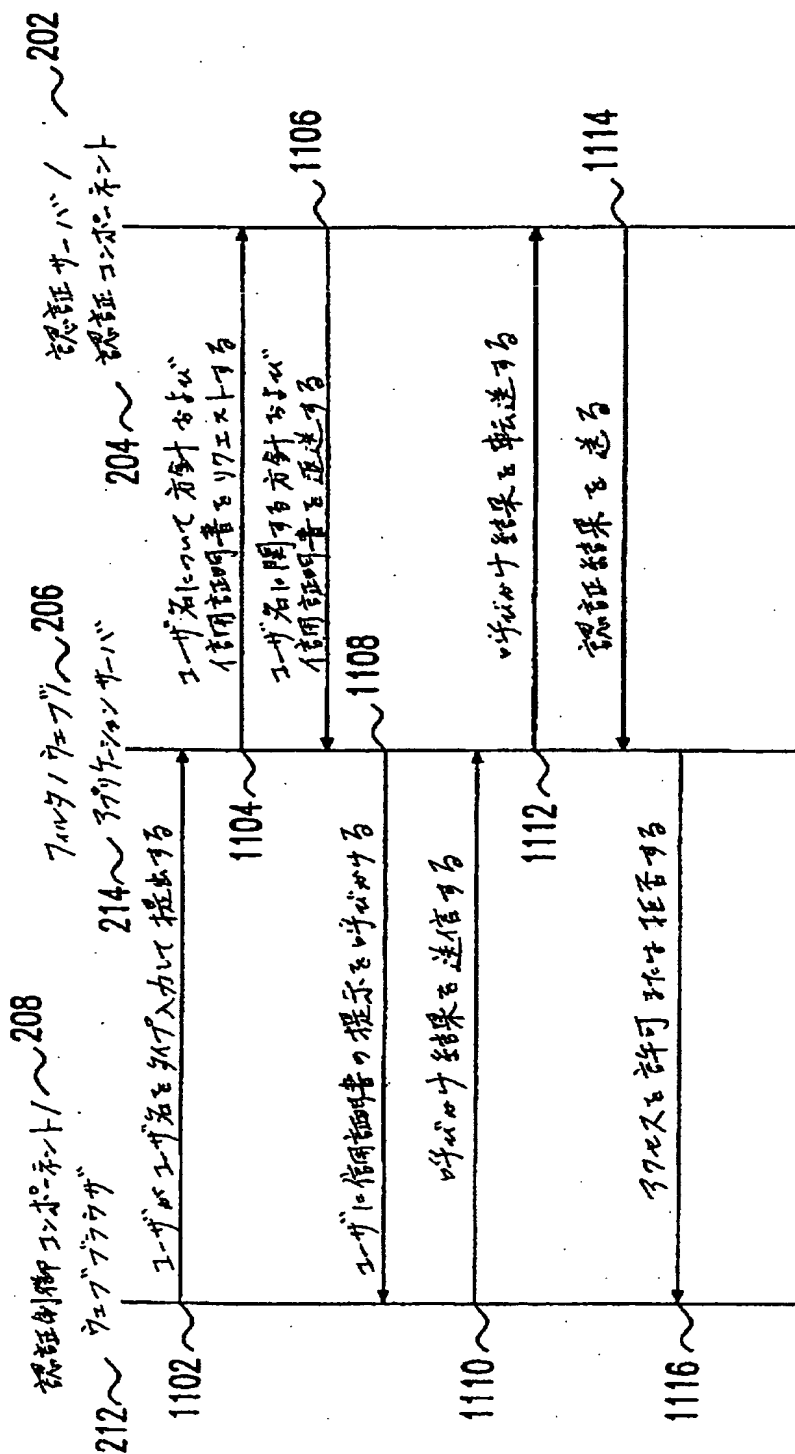 認証制御コンポーネント/ 208
212 ウェブブラウザ
フィルタ/ウェブ/ 206
214 アプリケーションサーバ
認証サーバ/ 202
204 認証コンポーネント
1102
ユーザがユーザ名をタイプ入力して提出する
ユーザ名について方針および
信用証明書をリクエストする
1104
ユーザ名に関する方針および
信用証明書を返送する
1106
ユーザに信用証明書の提示を呼びかける
1108
1110
呼びかけ結果を送信する
呼びかけ結果を転送する
1112
認証結果を送る
1114
1116
アクセスを許可または拒否する